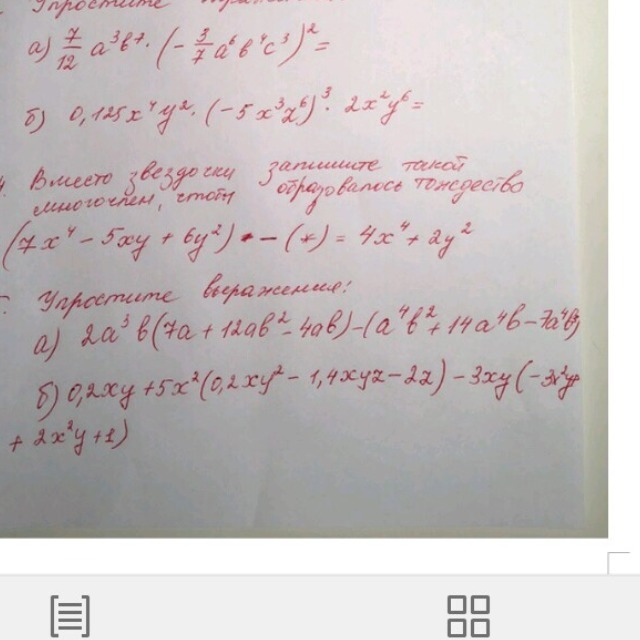 Упростите
а) 7/12 a³b⁷ · (- 3/7 a⁶b⁴c³)² =
б) 0,125x⁴y² · (-5x³z⁶)³ · 2x²y⁶ =
4. Вместо звездочки запишите такой
многочлен, чтобы образовалось тождество
(7x⁴ - 5xy + 6y²) - (*) = 4x⁴ + 2y²
Упростите выражения:
а) 2a³b(7a + 12ab² - 4ab) - (a⁴b² + 14a⁴b - 7a⁴b
б) 0,2xy + 5x²(0,2xy² - 1,4xyz - 2z) - 3xy(-3x²y
+ 2x²y + 1)